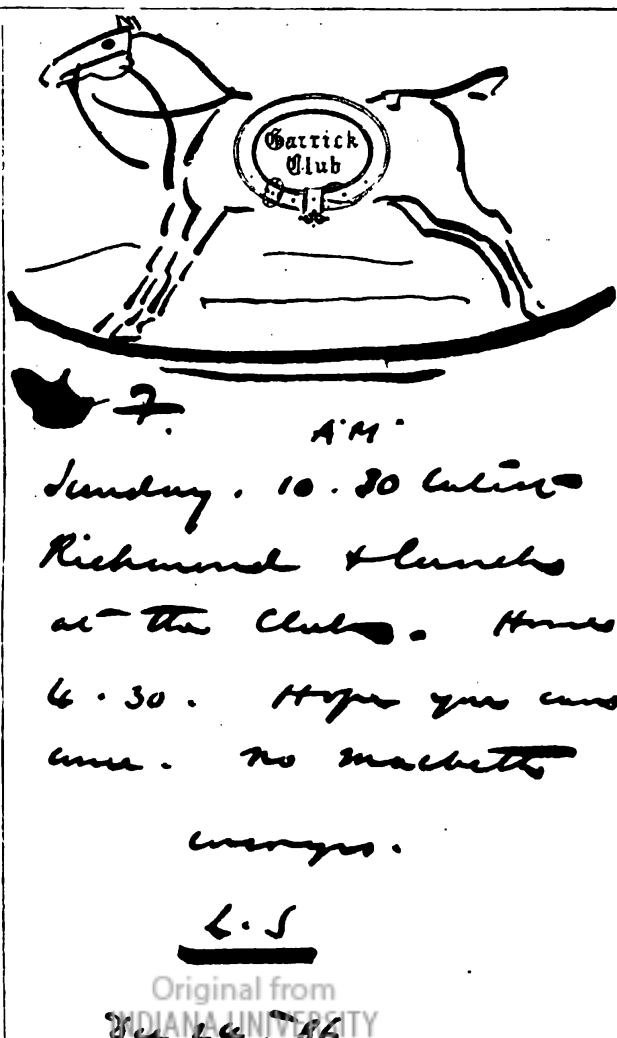 Garrick
Club
7.
A.M.
Sunday. 10.30
Richmond & lunch
at the Club. Home
4.30. Hope you can
come. No Macbeth
L.S
Original from
INDIANA UNIVERSITY